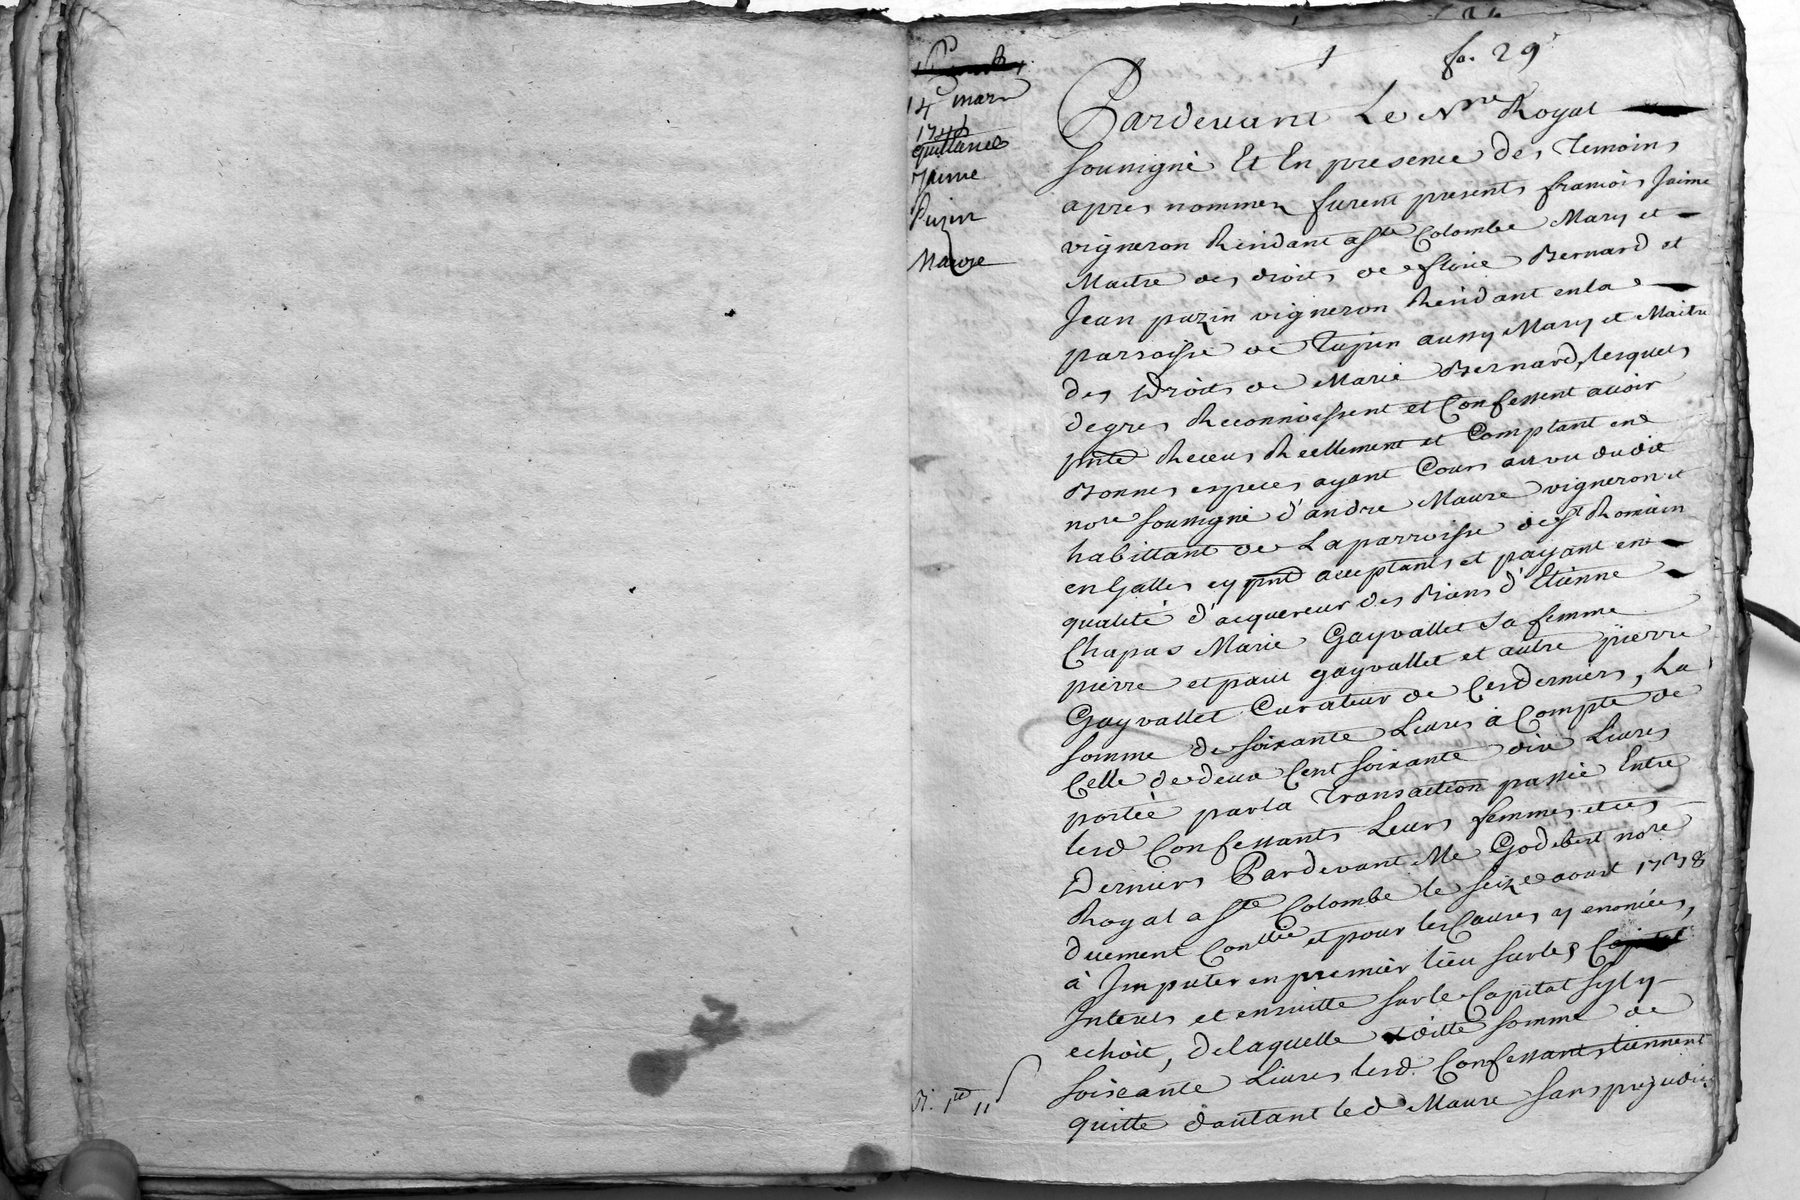 14 mars
quittance
Jaime
Puzin
Maure
1
fo. 29
Pardevant Le Nre Royal
sousigné Et En presence des Temoins
apres nommez furent presents francois Jaime
vigneron Residant a Ste Colombe Mary et
Maitre des droits de Bernard et
Jean puzin vigneron Residant en la
parroisse de Tupin aussy Mary et Maitre
des Droits de Marie Bernard, lesquels
de gres Reconnoissent et Confessent avoir
Receus Reellement et Comptant en
Bonnes especes ayant Cours au vu dudit
nore sousigné d'andre Maure vigneron et
habittant de La parroisse de St Romain
en Galles cy pnt acceptant et payant en
qualité d'acquereur des Biens d'Etienne
Chapas Marie Gayvallet sa femme
pierre et paul gayvallet et autre pierre
Gayvallet Curateur de Ces Derniers, La
somme de soixante Livres à Compte de
Celle de deux Cent soixante dix Livres
portée par la Transaction passée Entre
lesd Confessants Leurs femmes et ces
Derniers Pardevant Me Godebert nore
Royal a Ste Colombe le seize aoust 1738
duement Conllée et pour les Causes y enoncées,
à Imputer en premier lieu sur les
Interets et ensuitte sur le Capital sy ly
echoit, de laquelle ditte somme de
soixante Livres lesd. Confessants tiennent
quitte d'autant led Maure sans prejudice